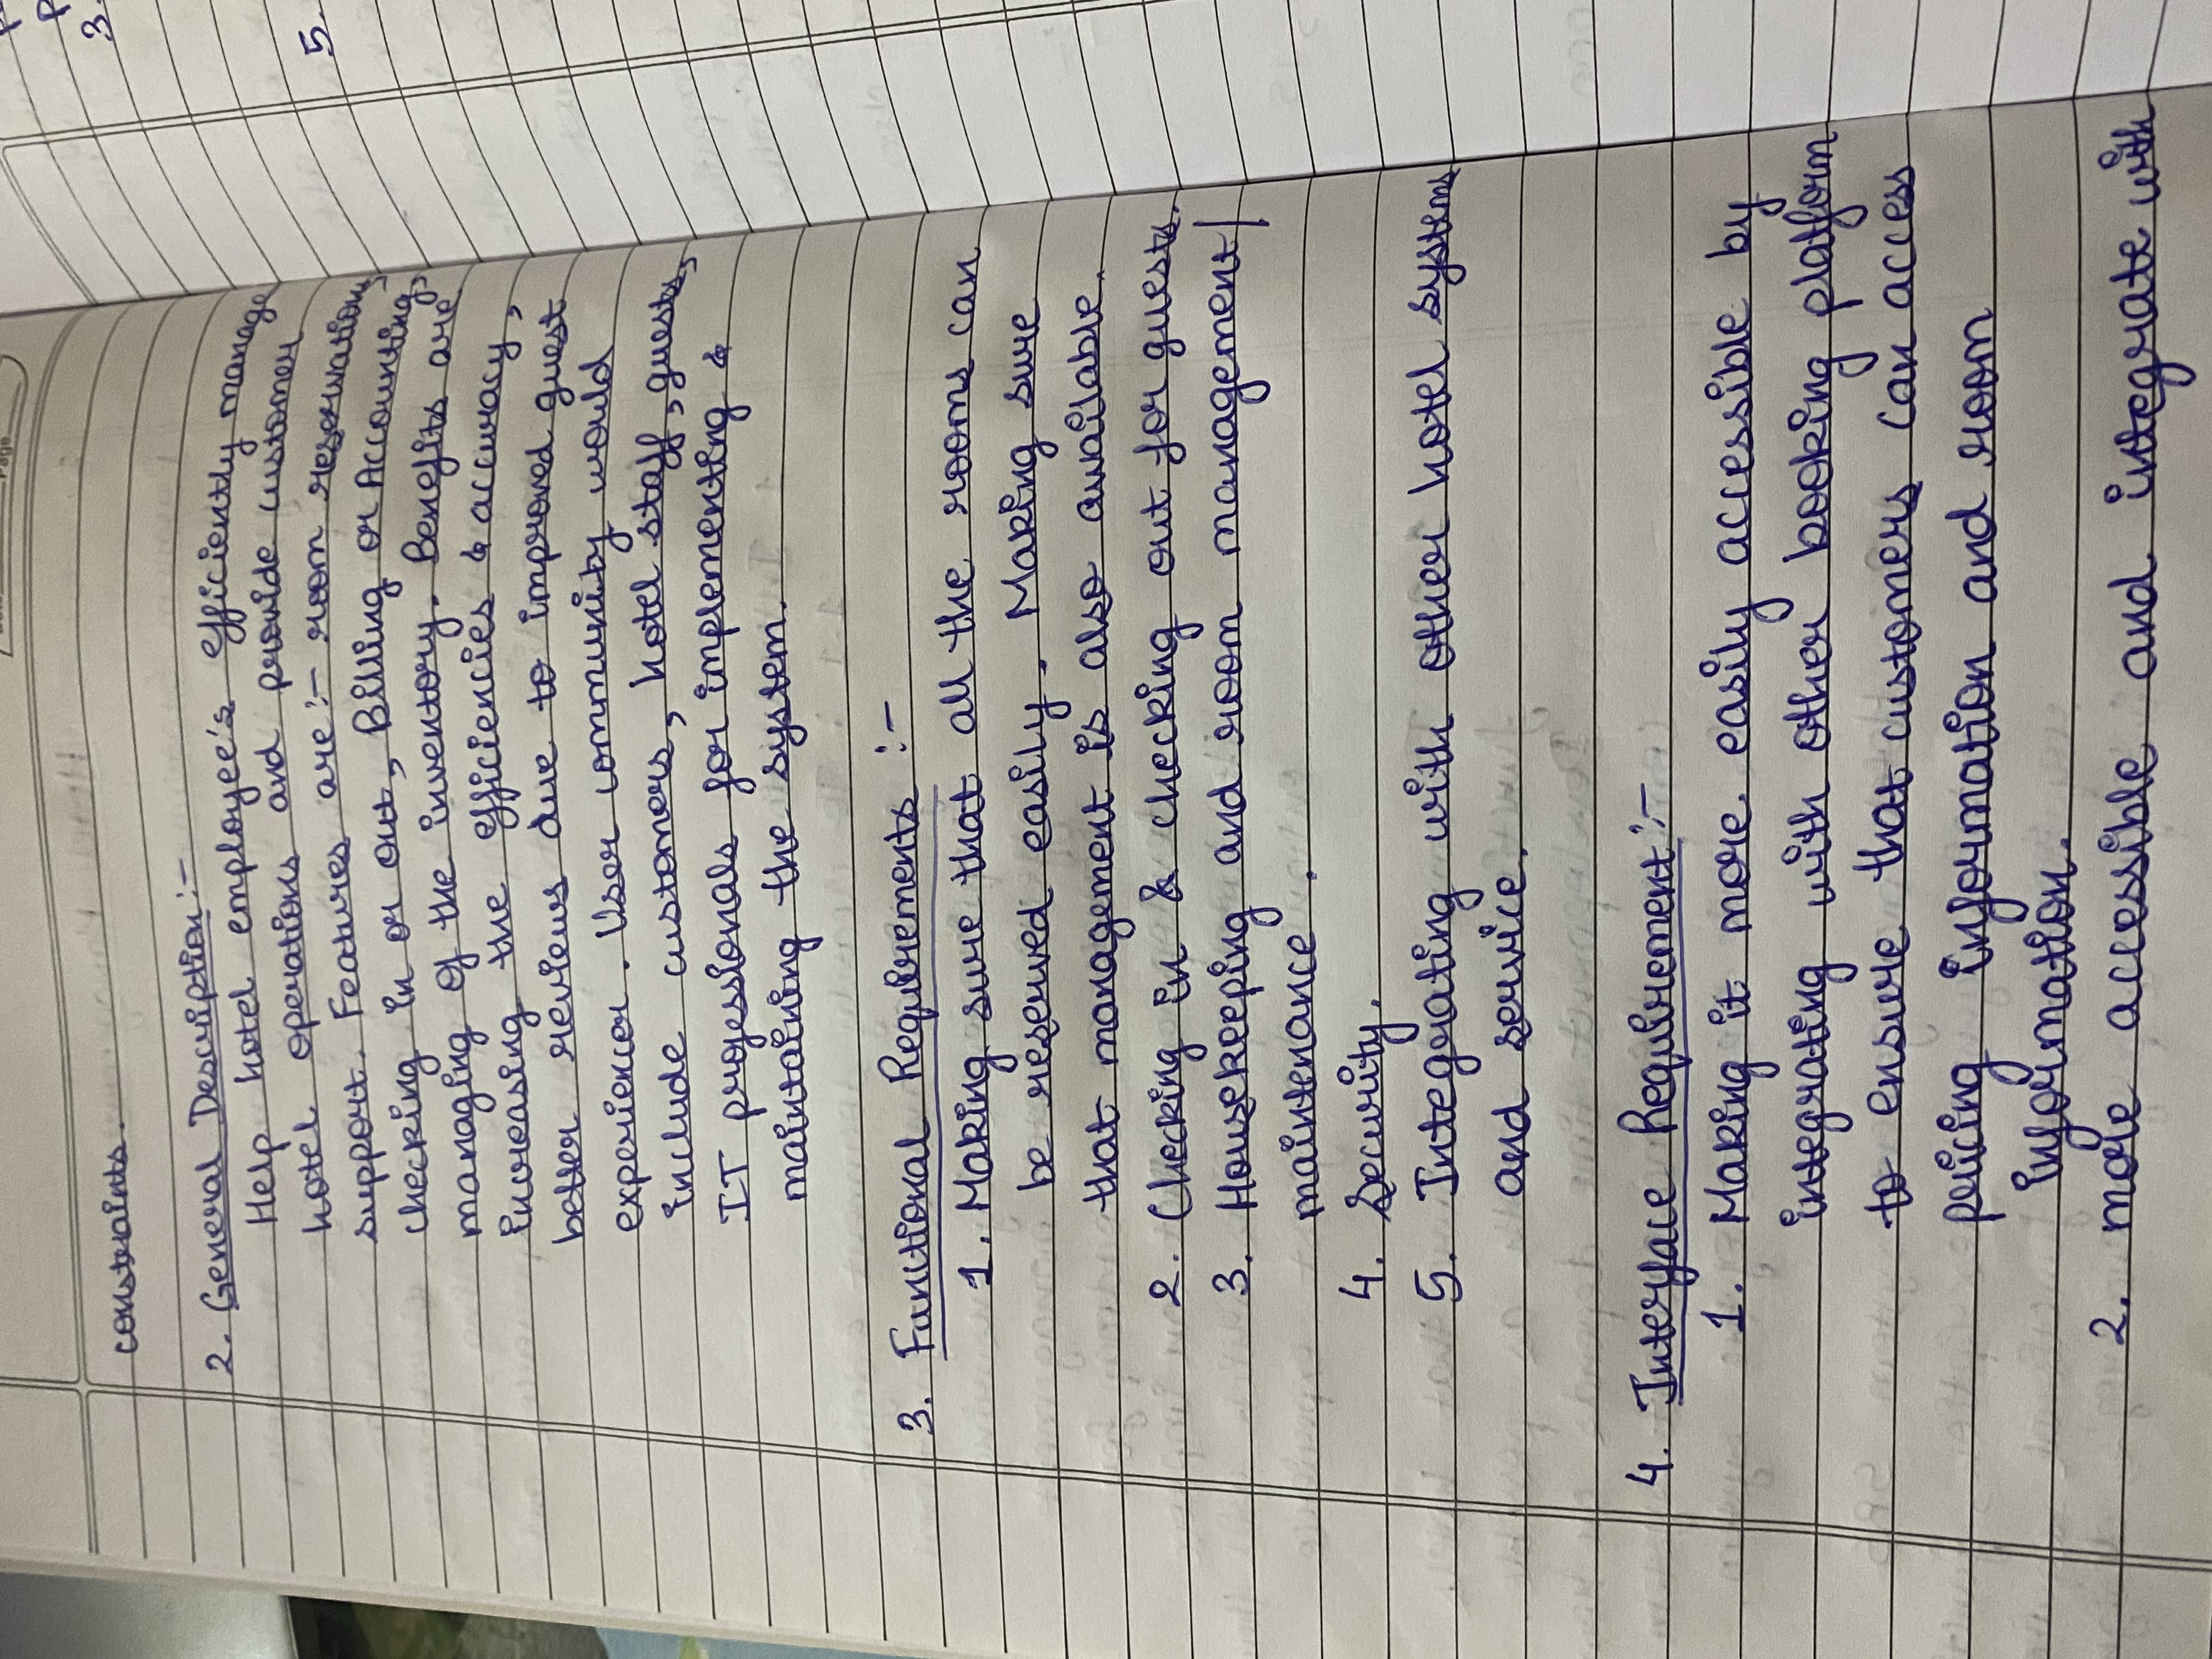 Page
constraints.
2. General Description :-
Help hotel employee's efficiently manage
hotel operations and provide customer
support. Features are :- room reservations,
checking in or out, Billing or Accounting,
managing of the inventory. Benefits are
increasing the efficiencies & accuracy,
better reviews due to improved guest
experiencer. User community would
include customers, hotel staff, guests,
IT professionals for implementing &
maintaining the system.
3. Functional Requirements :-
1. Making sure that all the rooms can
be reserved easily. Making sure
that management is also available.
2. Checking in & checking out for guests.
3. Housekeeping and room management/
maintenance.
4. Security.
5. Integrating with other hotel systems
and service.
4. Interface Requirement :-
1. Making it more easily accessible by
integrating with other booking platform
to ensure that customers can access
pricing information and room
information.
2. more accessible and integrate with
3.
5.